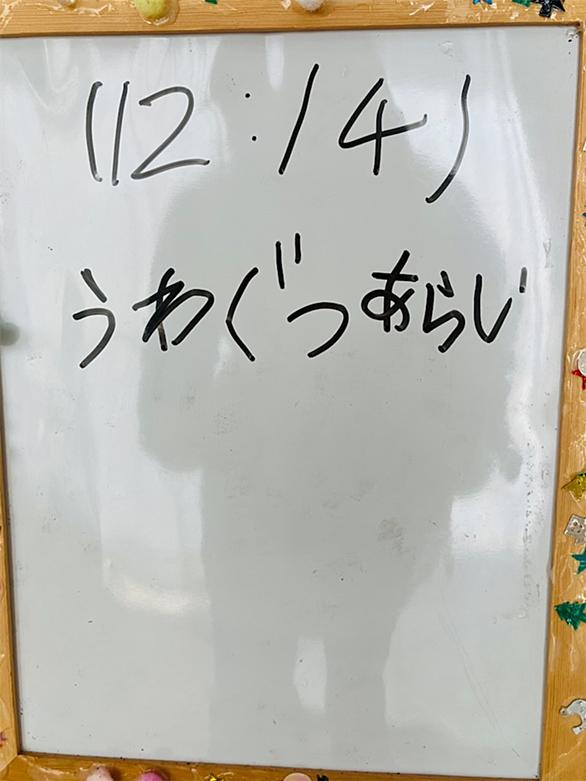 (12:14)
うわぐつあらい